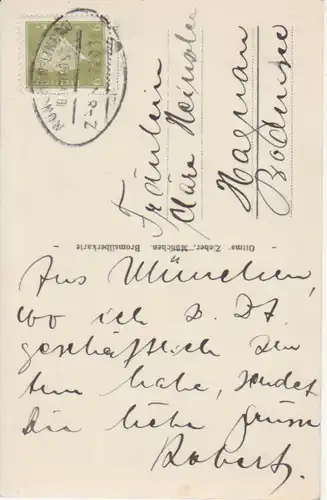 Fräulein
Clara
Hagnau
Bodensee
Ottmar Zieher, München. Bromsilberkarte
Aus München,
wo ich z. Zt.
geschäftlich zu
tun habe, sendet
Dir liebe Grüsse
Robert.